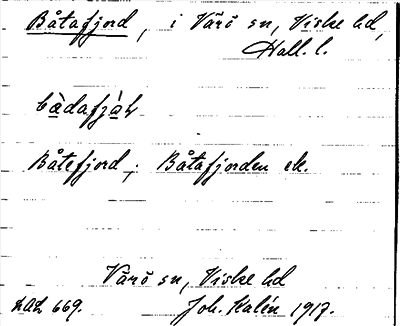 Båtafjord, i Värö sn, Viske hd,
Hall. l.
bàdafjàh
Båtefjord; Båtafjorden ek.
Värö sn, Viske hd
KAL 669. Joh. Kalén 1917.